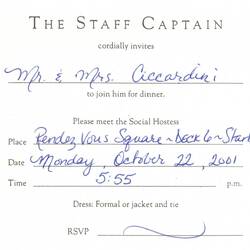 THE STAFF CAPTAIN
cordially invites
Mr. & Mrs. Ciccardini
to join him for dinner.
Please meet the Social Hostess
Place Rendez Vous Square ~ Deck 6 ~ Star
Date Monday, October 22, 2001
Time 5:55 p.m.
Dress: Formal or jacket and tie
RSVP